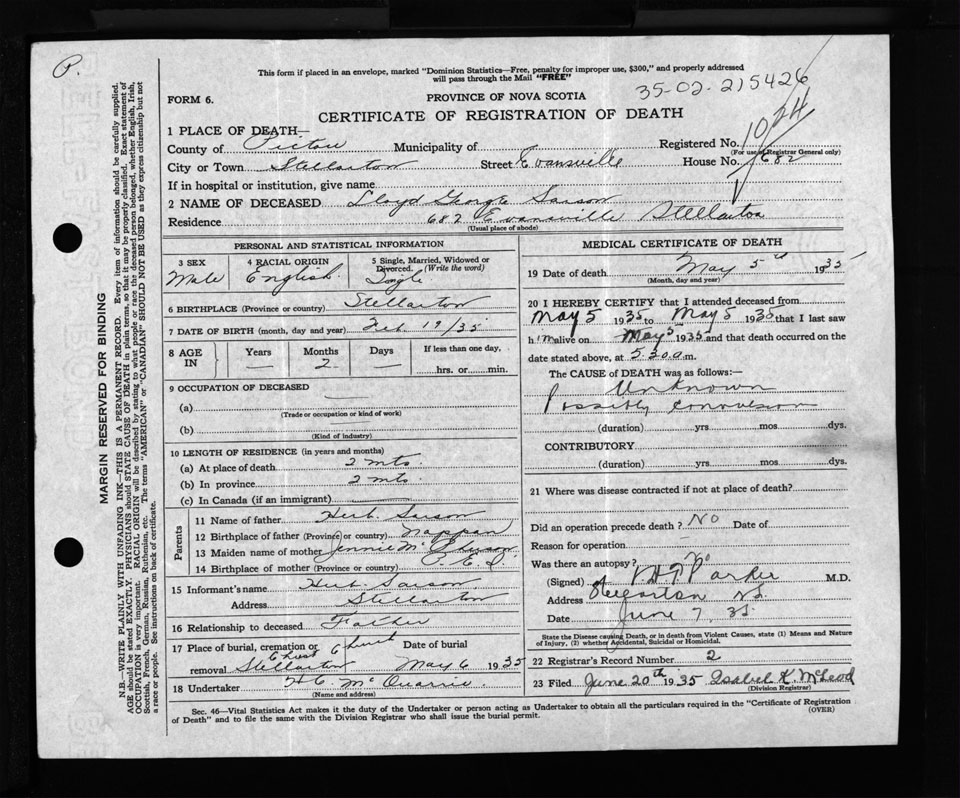 P.
This form if placed in an envelope, marked "Dominion Statistics—Free, penalty for improper use, $300," and properly addressed
will pass through the Mail "FREE"
35-02-215426
FORM 6.
PROVINCE OF NOVA SCOTIA
CERTIFICATE OF REGISTRATION OF DEATH
1 PLACE OF DEATH—
County of Pictou Municipality of Registered No. 1024
(For use of Registrar General only)
City or Town Stellarton Street Evansville House No. 682
If in hospital or institution, give name
2 NAME OF DECEASED Lloyd George Sarson
Residence 682 Evansville Stellarton
(Usual place of abode)
PERSONAL AND STATISTICAL INFORMATION
3 SEX 4 RACIAL ORIGIN 5 Single, Married, Widowed or Divorced. (Write the word)
Male English Single
6 BIRTHPLACE (Province or country) Stellarton
7 DATE OF BIRTH (month, day and year) Feb. 19/35
8 AGE IN Years Months Days If less than one day,
— 2 — hrs. or min.
9 OCCUPATION OF DECEASED
(a)
(Trade or occupation or kind of work)
(b)
(Kind of industry)
10 LENGTH OF RESIDENCE (in years and months)
(a) At place of death 2 mts.
(b) In province 2 mts.
(c) In Canada (if an immigrant)
Parents
11 Name of father Herb. Sarson
12 Birthplace of father (Province or country) Nappan
13 Maiden name of mother Jennie Mc
14 Birthplace of mother (Province or country) P.E.I.
15 Informant's name Herb. Sarson
Address Stellarton
16 Relationship to deceased Father
17 Place of burial, cremation or removal Christ Church Stellarton Date of burial May 6 1935
18 Undertaker H C McQuarrie
(Name and address)
MEDICAL CERTIFICATE OF DEATH
19 Date of death May 5th 1935
(Month, day and year)
20 I HEREBY CERTIFY that I attended deceased from
May 5 1935 to May 5 1935 that I last saw
him alive on May 5 1935 and that death occurred on the
date stated above, at 5.30 a.m.
The CAUSE of DEATH was as follows:—
Unknown
Possibly convulsion
(duration) yrs mos dys.
CONTRIBUTORY
(duration) yrs mos dys.
21 Where was disease contracted if not at place of death?
Did an operation precede death? No Date of
Reason for operation
Was there an autopsy? No
(Signed) Parker M.D.
Address Stellarton NS.
Date June 7. 35
State the Disease causing Death, or in death from Violent Causes, state (1) Means and Nature
of Injury, (2) whether Accidental, Suicidal or Homicidal.
22 Registrar's Record Number 2
23 Filed June 20th 1935 Isabel K. McLeod
(Division Registrar)
Sec. 46—Vital Statistics Act makes it duty of the Undertaker or person acting as Undertaker to obtain all the particulars required in the "Certificate of Registration
of Death" and to file the same with the Division Registrar who shall issue the burial permit.
(OVER)
MARGIN RESERVED FOR BINDING
N.B.—WRITE PLAINLY WITH UNFADING INK—THIS IS A PERMANENT RECORD. Every item of information should be carefully supplied.
AGE should be stated EXACTLY. PHYSICIANS should STATE CAUSE OF DEATH in plain terms, so that it may be properly classified. Exact statement of
OCCUPATION is very important. RACIAL ORIGIN will be described by stating to what people or race the deceased person belonged, whether English, Irish,
Scottish, French, German, Russian, Ruthenian, etc. The terms "AMERICAN" or "CANADIAN" SHOULD NOT BE USED as they express citizenship but not
a race or people. See instructions on back of certificate.